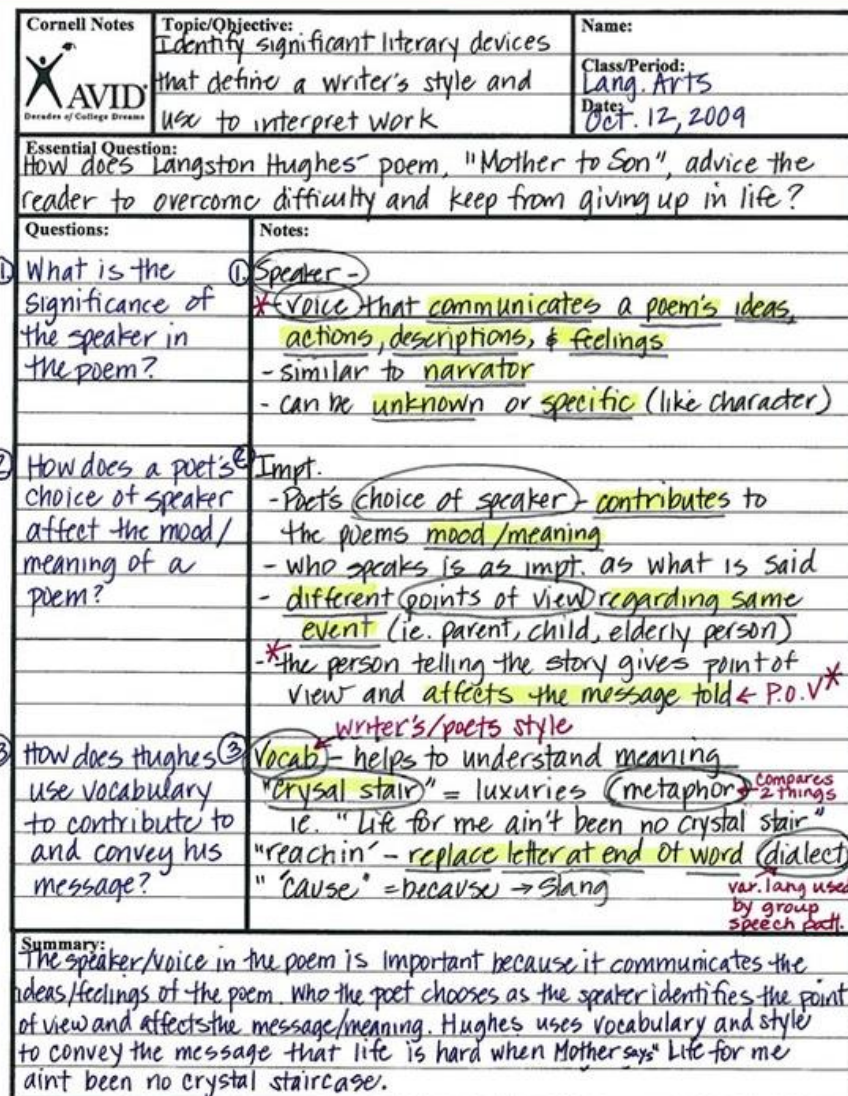 Cornell Notes
AVID
Decades of College Dreams
Topic/Objective:
Identify significant literary devices
that define a writer's style and
use to interpret work
Name:
Class/Period:
Lang. Arts
Date:
Oct. 12, 2009
Essential Question:
How does Langston Hughes' poem, "Mother to Son", advice the
reader to overcome difficulty and keep from giving up in life?
Questions:
① What is the
significance of
the speaker in
the poem?
② How does a poet's
choice of speaker
affect the mood/
meaning of a
poem?
③ How does Hughes
use vocabulary
to contribute to
and convey his
message?
Notes:
①. Speaker -
* - voice that communicates a poem's ideas,
actions, descriptions, & feelings
- similar to narrator
- can be unknown or specific (like character)
② Impt.
- Poet's choice of speaker - contributes to
the poems mood/meaning
- who speaks is as impt. as what is said
- different points of view regarding same
event (ie. parent, child, elderly person)
- * the person telling the story gives point of
view and affects the message told ← P.O.V *
writer's/poets style
③ Vocab - helps to understand meaning
"crysal stair" = luxuries metaphor ← compares
2 things
ie. "Life for me ain't been no crystal stair"
"reachin' - replace letter at end of word dialect
" 'cause" = because → slang
var. lang used
by group
speech patt.
Summary:
The speaker/voice in the poem is important because it communicates the
ideas/feelings of the poem. Who the poet chooses as the speaker identifies the point
of view and affects the message/meaning. Hughes uses vocabulary and style
to convey the message that life is hard when Mother says "Life for me
aint been no crystal staircase.